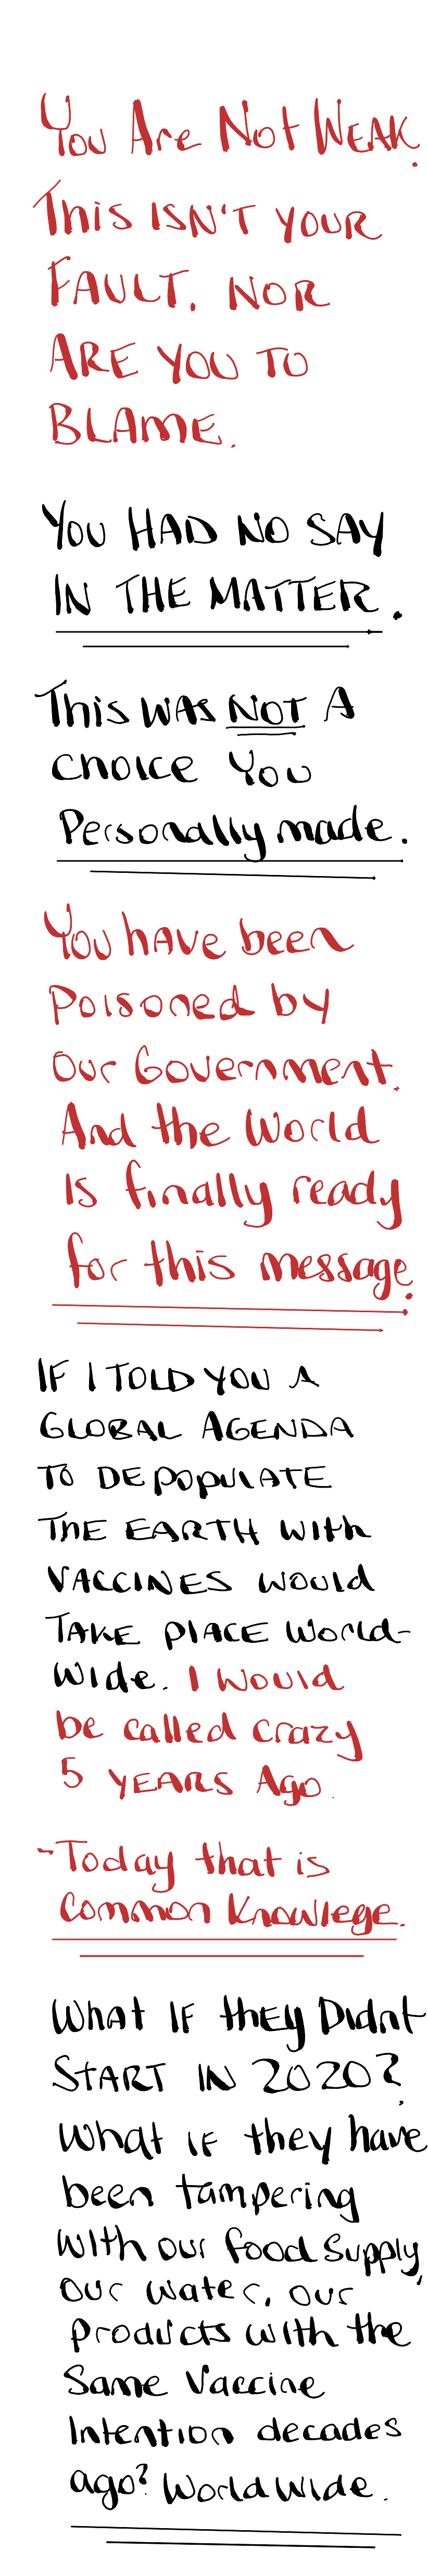 You Are Not WEAK.
This ISN'T YOUR
FAULT. NOR
ARE YOU TO
BLAME.
YOU HAD NO SAY
IN THE MATTER.
This WAS NOT A
CHOICE YOU
Personally made.
You have been
Poisoned by
Our Government.
And the World
Is finally ready
for this message.
IF I TOLD YOU A
GLOBAL AGENDA
TO DEPOPULATE
THE EARTH WITH
VACCINES WOULD
TAKE PLACE World-
Wide. I Would
be called crazy
5 YEARS Ago.
-Today that is
Common Knowlege.
What IF thEy Didnt
START IN 2020?
What IF they have
been tampering
With our food supply,
Our water, our
Products with the
Same Vaccine
Intention decades
ago? World Wide.